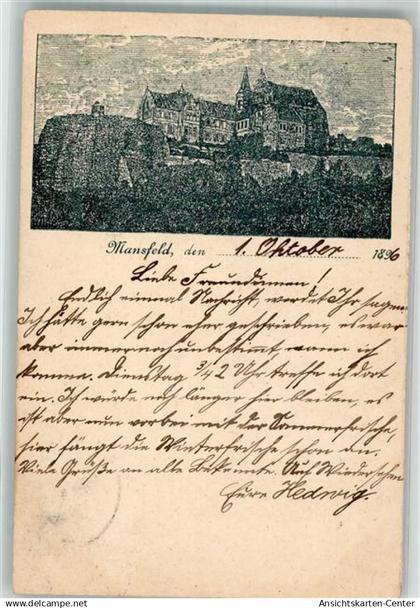 Mansfeld, den 1. Oktober 1896
Liebe Freundinnen!
Endlich einmal Nachricht, werdet Ihr sagen.
Ich hätte gern schon eher geschrieben, es war
aber immer noch unbestimmt, wann ich
komme. Dienstag 3/4 2 Uhr treffe ich dort
ein. Ich würde noch länger hier bleiben, es
ist aber nun vorbei mit der Sommerfrische,
hier fängt die Winterfrische schon an.
Viele Grüße an alte Bekannte. Auf Wiedersehen
Eure Hedwig.
Ansichtskarten-Center